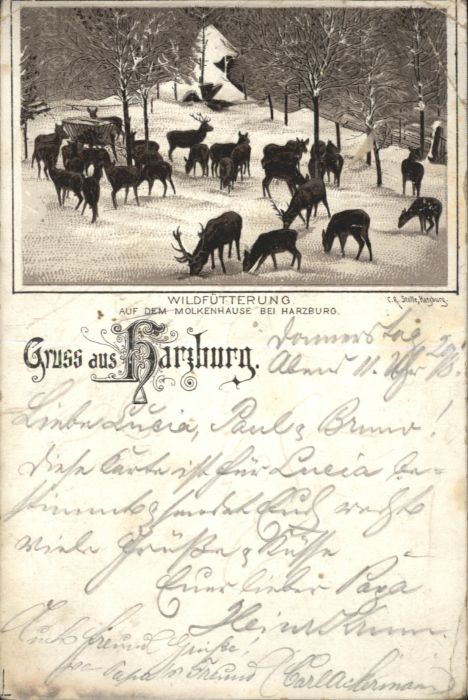 WILDFÜTTERUNG
AUF DEM MOLKENHAUSE BEI HARZBURG.
C.R. Stolle, Harzburg.
Gruss aus Harzburg.
Donnerstag
Abend 11. Uhr
Liebe Lucia, Paul & Bruno!
Diese Karte ist für Lucia be-
stimmt & sendet Euch recht
viele Grüße & Küsse
Euer lieber Papa
Auch Freund Grüße,
Papas Freund Carl Ackermann